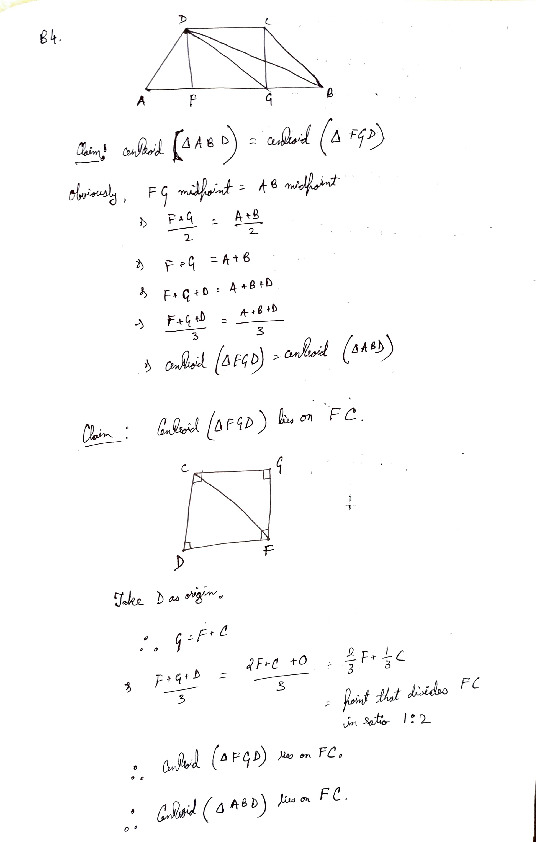 B4.
D C
A F G B
Claim: centroid (Δ ABD) = centroid (Δ FGD)
Obviously, FG midpoint = AB midpoint
⇒ F+G/2 = A+B/2
⇒ F+G = A+B
⇒ F+G+D = A+B+D
⇒ F+G+D/3 = A+B+D/3
⇒ centroid (ΔFGD) = centroid (ΔABD)
Claim: Centroid (ΔFGD) lies on FC.
C G
D F
Take D as origin.
∴ G = F+C
⇒ F+G+D/3 = 2F+C+0/3 = 2/3 F + 1/3 C
= point that divides FC
in ratio 1:2
∴ Centroid (ΔFGD) lies on FC.
∴ Centroid (ΔABD) lies on FC.